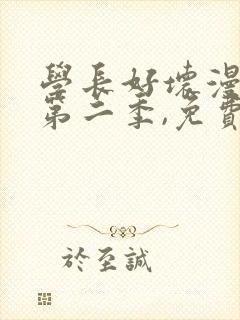 學長好壞漫
第二季,免費
於至誠